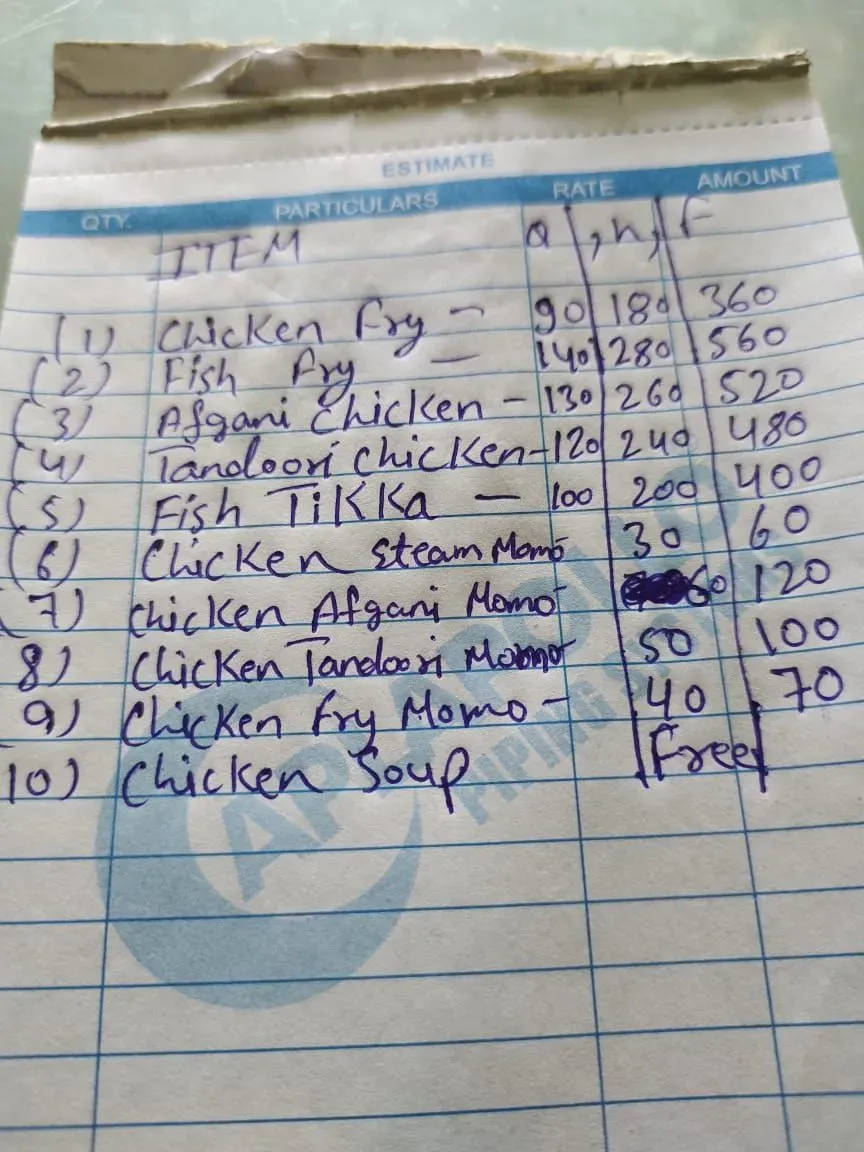 ESTIMATE
QTY. PARTICULARS RATE AMOUNT
ITEM Q , h, F
(1) Chicken Fry - 90 180 360
(2) Fish Fry - 140 280 560
(3) Afgani Chicken - 130 260 520
(4) Tandoori Chicken - 120 240 480
(5) Fish TiKKa - 100 200 400
(6) Chicken Steam Momo 30 60
(7) Chicken Afgani Momo 60 120
8) Chicken Tandoori Momo 50 100
9) Chicken Fry Momo - 40 70
10) Chicken Soup Free
APL APOLLO
PIPING